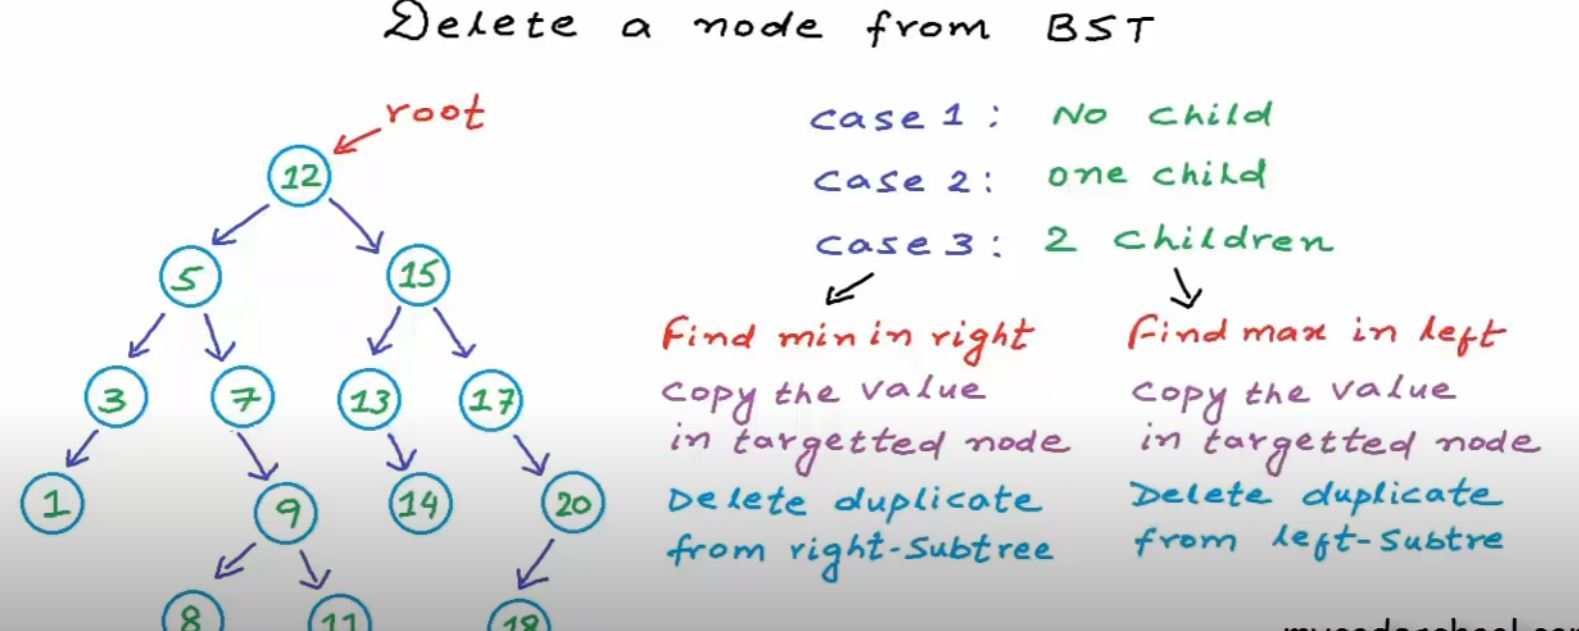 Delete a node from BST
root
case 1: No child
case 2: one child
case 3: 2 children
Find min in right
copy the value
in targetted node
Delete duplicate
from right-subtree
Find max in left
copy the value
in targetted node
Delete duplicate
from left-subtre
12
5 15
3 7 13 17
1 9 14 20
8 11 18